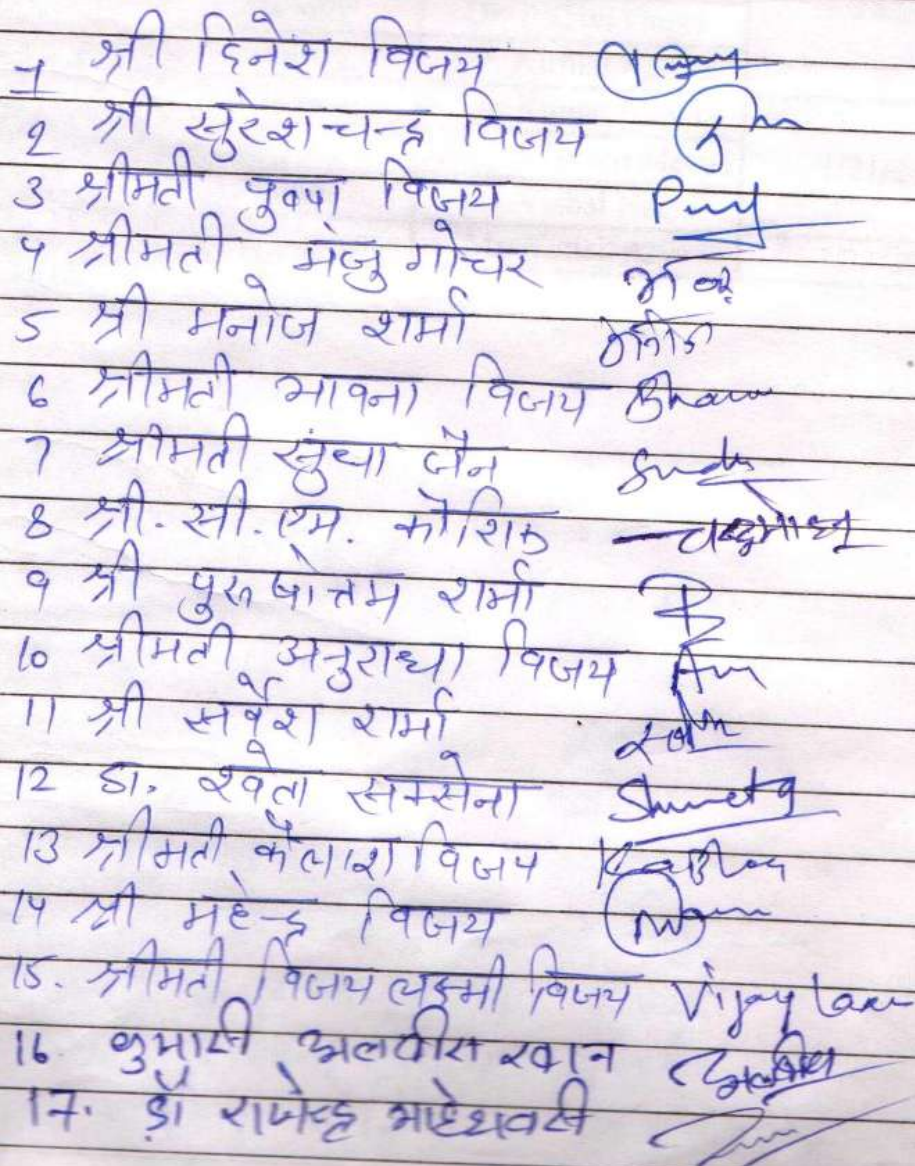 1 श्री दिनेश विजय
2 श्री सुरेशचन्द्र विजय
3 श्रीमती पुष्पा विजय
4 श्रीमती मंजु गोचर
5 श्री मनोज शर्मा मनोज
6 श्रीमती भावना विजय
7 श्रीमती सुधा जैन
8 श्री. सी. एम. कौशिक
9 श्री पुरुषोत्तम शर्मा
10 श्रीमती अनुराधा विजय
11 श्री सर्वेश शर्मा
12 डा. श्वेता सक्सेना Shweta
13 श्रीमती कैलाश विजय
14 श्री महेन्द्र विजय
15. श्रीमती विजय लक्ष्मी विजय Vijay
16 कुमारी खान
17. डॉ राजेन्द्र माहेश्वरी